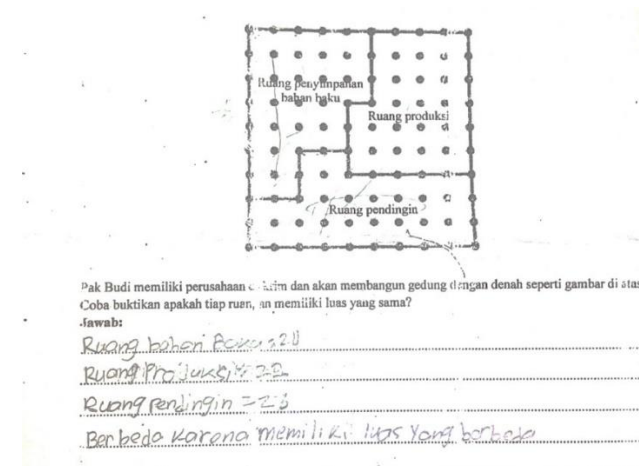 Ruang penyimpanan
bahan baku
Ruang produksi
Ruang pendingin
Pak Budi memiliki perusahaan dan akan membangun gedung dengan denah seperti gambar di atas
Coba buktikan apakah tiap memiliki luas yang sama?
Jawab:
Ruang bahan
Ruang
Ruang Pendingin =
Berbeda Karena memiliki luas Yang berbeda